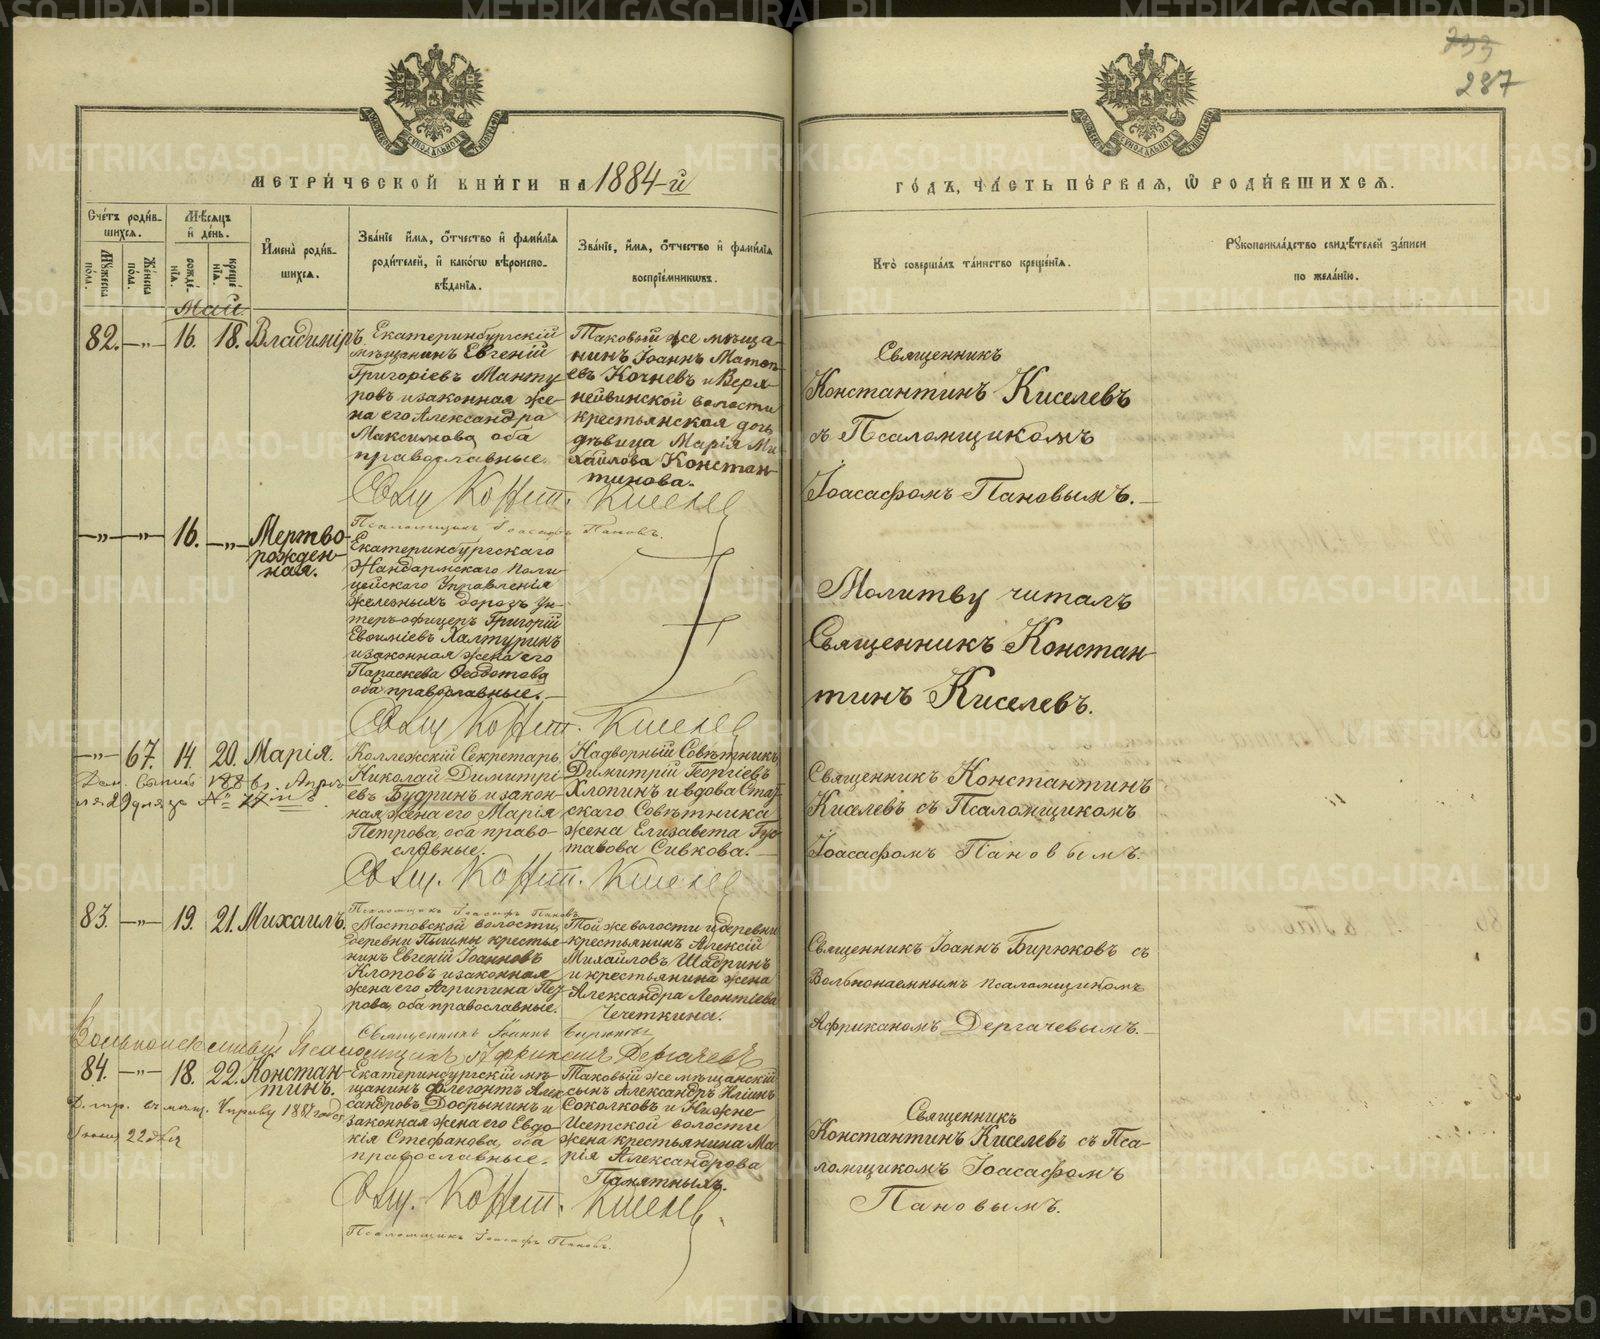 233
287
МЕТРИЧЕСКОЙ КНИГИ НА 1884-й
ГОДЪ, ЧАСТЬ ПЕРВАЯ, Ѡ РОДИВШИХСЯ.
Счетъ родив-
шихся.
Мужеска
пола.
Женска
пола.
Мѣсяцъ
и день.
рожде-
нія.
креще-
нія.
Имена родив-
шихся.
Званіе, имя, отчество и фамилія
родителей, и какогѡ вѣроиспо-
вѣданія.
Званіе, имя, отчество и фамилія
воспріемникѡвъ.
Кто совершалъ таинство крещенія.
Рукоприкладство свидѣтелей записи
по желанію.
Май
82. —„— 16. 18. Владиміръ
Екатеринбургскій
мѣщанинъ Евгеній
Григоріевъ Манту
ровъ и законная же-
на его Александра
Максимова, оба
православные.
Таковый же мѣща-
нинъ Іоаннъ Матѳ
евъ Кочневъ и Верх-
нейвинской волости
крестьянская дочь
дѣвица Марія Ми
хайлова Констан-
тинова.
Священникъ
Константинъ Киселевъ
съ Псаломщикомъ
Іоасафомъ Пановымъ.
Свящ. Конст. Киселевъ
Псаломщикъ Іоасафъ Пановъ.
—„— —„— 16. —„— Мертво-
рожден-
ная.
Екатеринбургскаго
Жандармскаго Поли-
цейскаго Управленія
железныхъ дорогъ Ун-
теръ-офицеръ Григорій
Евѳиміевъ Халтуринъ
и законная жена его
Параскева Ѳеодотова
оба православные.
Молитву читалъ
Священникъ Констан-
тинъ Киселевъ.
Свящ. Конст. Киселевъ
—„— 67. 14. 20. Марія.
Коллежскій Секретарь
Николай Димитрі-
евъ Будринъ и закон-
ная жена его Марія
Петрова, оба право-
славные.
Надворный Совѣтникъ
Димитрій Георгіевъ
Хлопинъ и вдова Стат-
скаго Совѣтника
жена Елизавета Гус-
тавова Сивкова.
Священникъ Константинъ
Киселевъ съ Псаломщикомъ
Іоасафомъ Пановымъ.
Свящ. Конст. Киселевъ
Псаломщикъ Іоасафъ Пановъ
83. —„— 19. 21. Михаилъ.
Мостовской волости,
деревни Пышмы крестья-
нинъ Евгеній Іоанновъ
Клоповъ и законная
жена его Агрипина Пет-
рова, оба православные.
Той же волости и деревни
крестьянинъ Алексій
Михайловъ Шадринъ
и крестьянина жена
Александра Леонтіева
Чечеткина.
Священникъ Іоаннъ Бирюковъ съ
Вольнонаемнымъ псаломщикомъ
Африканомъ Дергачевымъ.
Священникъ Іоаннъ Бирюковъ
Псаломщикъ Африканъ Дергачевъ
84. —„— 18. 22. Констан-
тинъ.
Екатеринбургскій мѣ-
щанинъ Флегонтъ Алек
сандровъ Добрынинъ и
законная жена его Евдо-
кія Стефанова, оба
православные.
Таковый же мѣщанскій
сынъ Александръ Иліинъ
Соколковъ и Нижне
Исетской волости
жена крестьянина Ма-
рія Александрова
Памятныхъ.
Священникъ
Константинъ Киселевъ съ Пса-
ломщикомъ Іоасафомъ
Пановымъ.
Свящ. Конст. Киселевъ.
Псаломщикъ Іоасафъ Пановъ.
METRIKI.GASO-URAL.RU